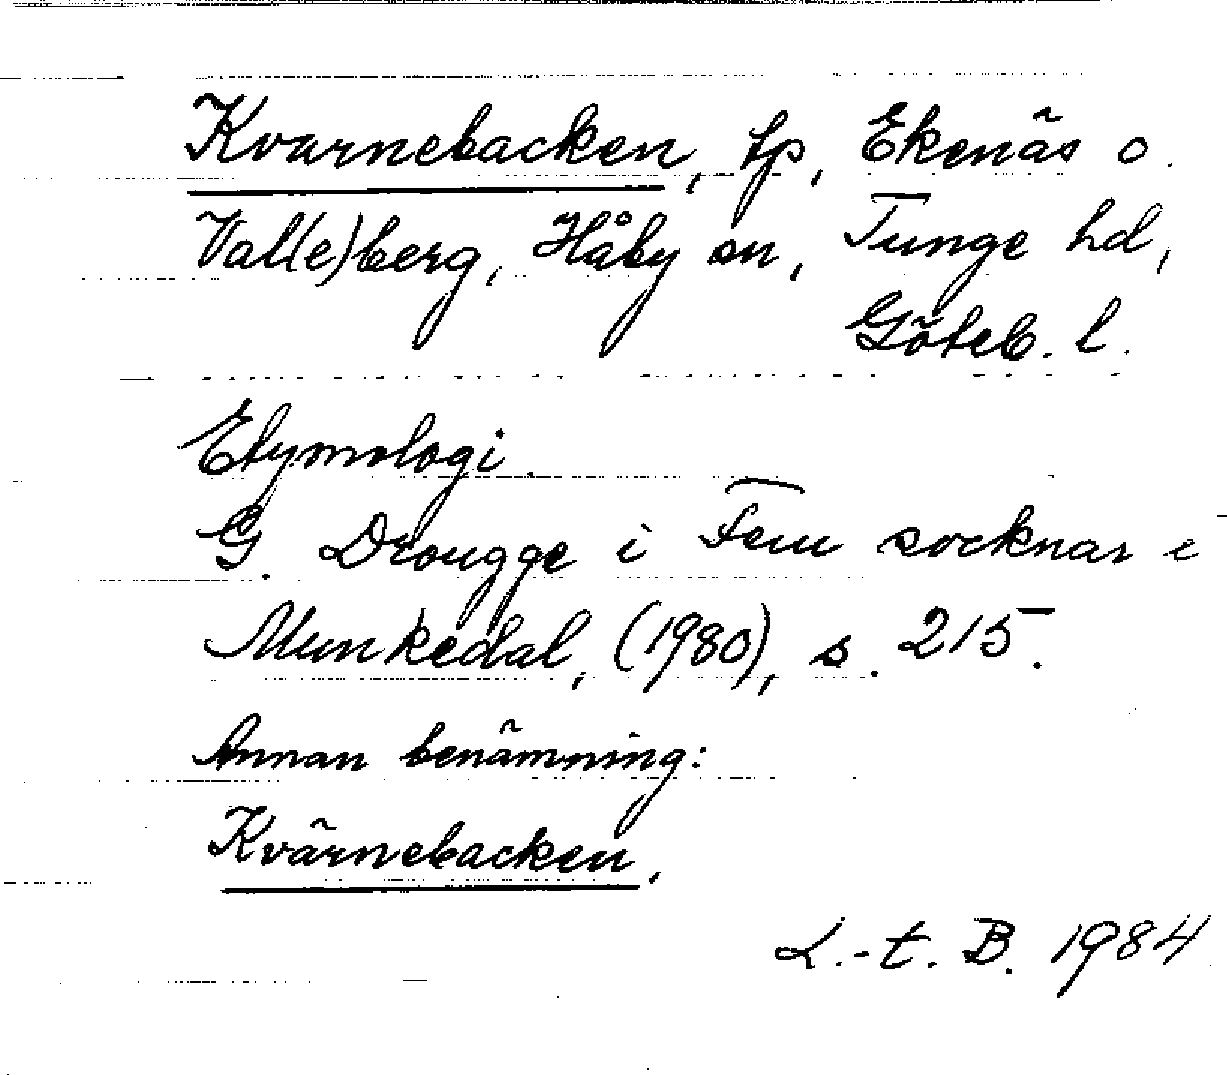 Kvarnebacken, tp, Ekenäs o.
Val(e)berg, Håby sn, Tunge hd,
Göteb. l.
Etymologi.
G. Drougge i Fem socknar i
Munkedal, (1980), s. 215.
Annan benämning:
Kvärnebacken,
L.-t. B. 1984